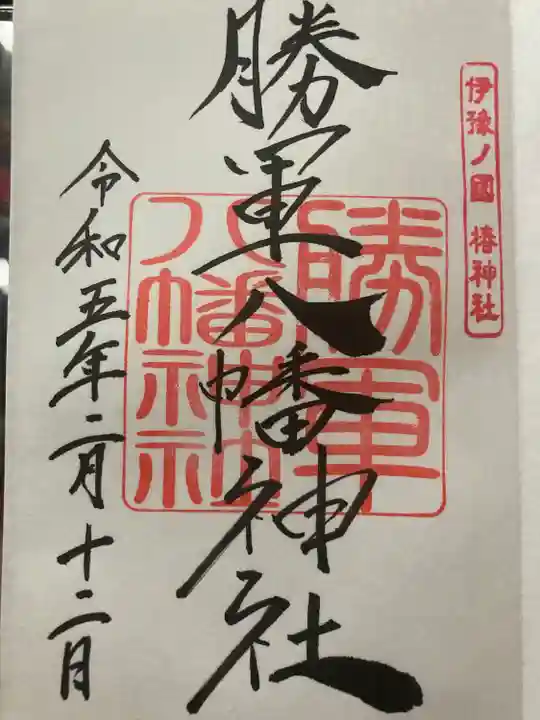 伊豫ノ國 椿神社
勝軍八幡神社
勝軍
八幡神社
令和五年二月十二日